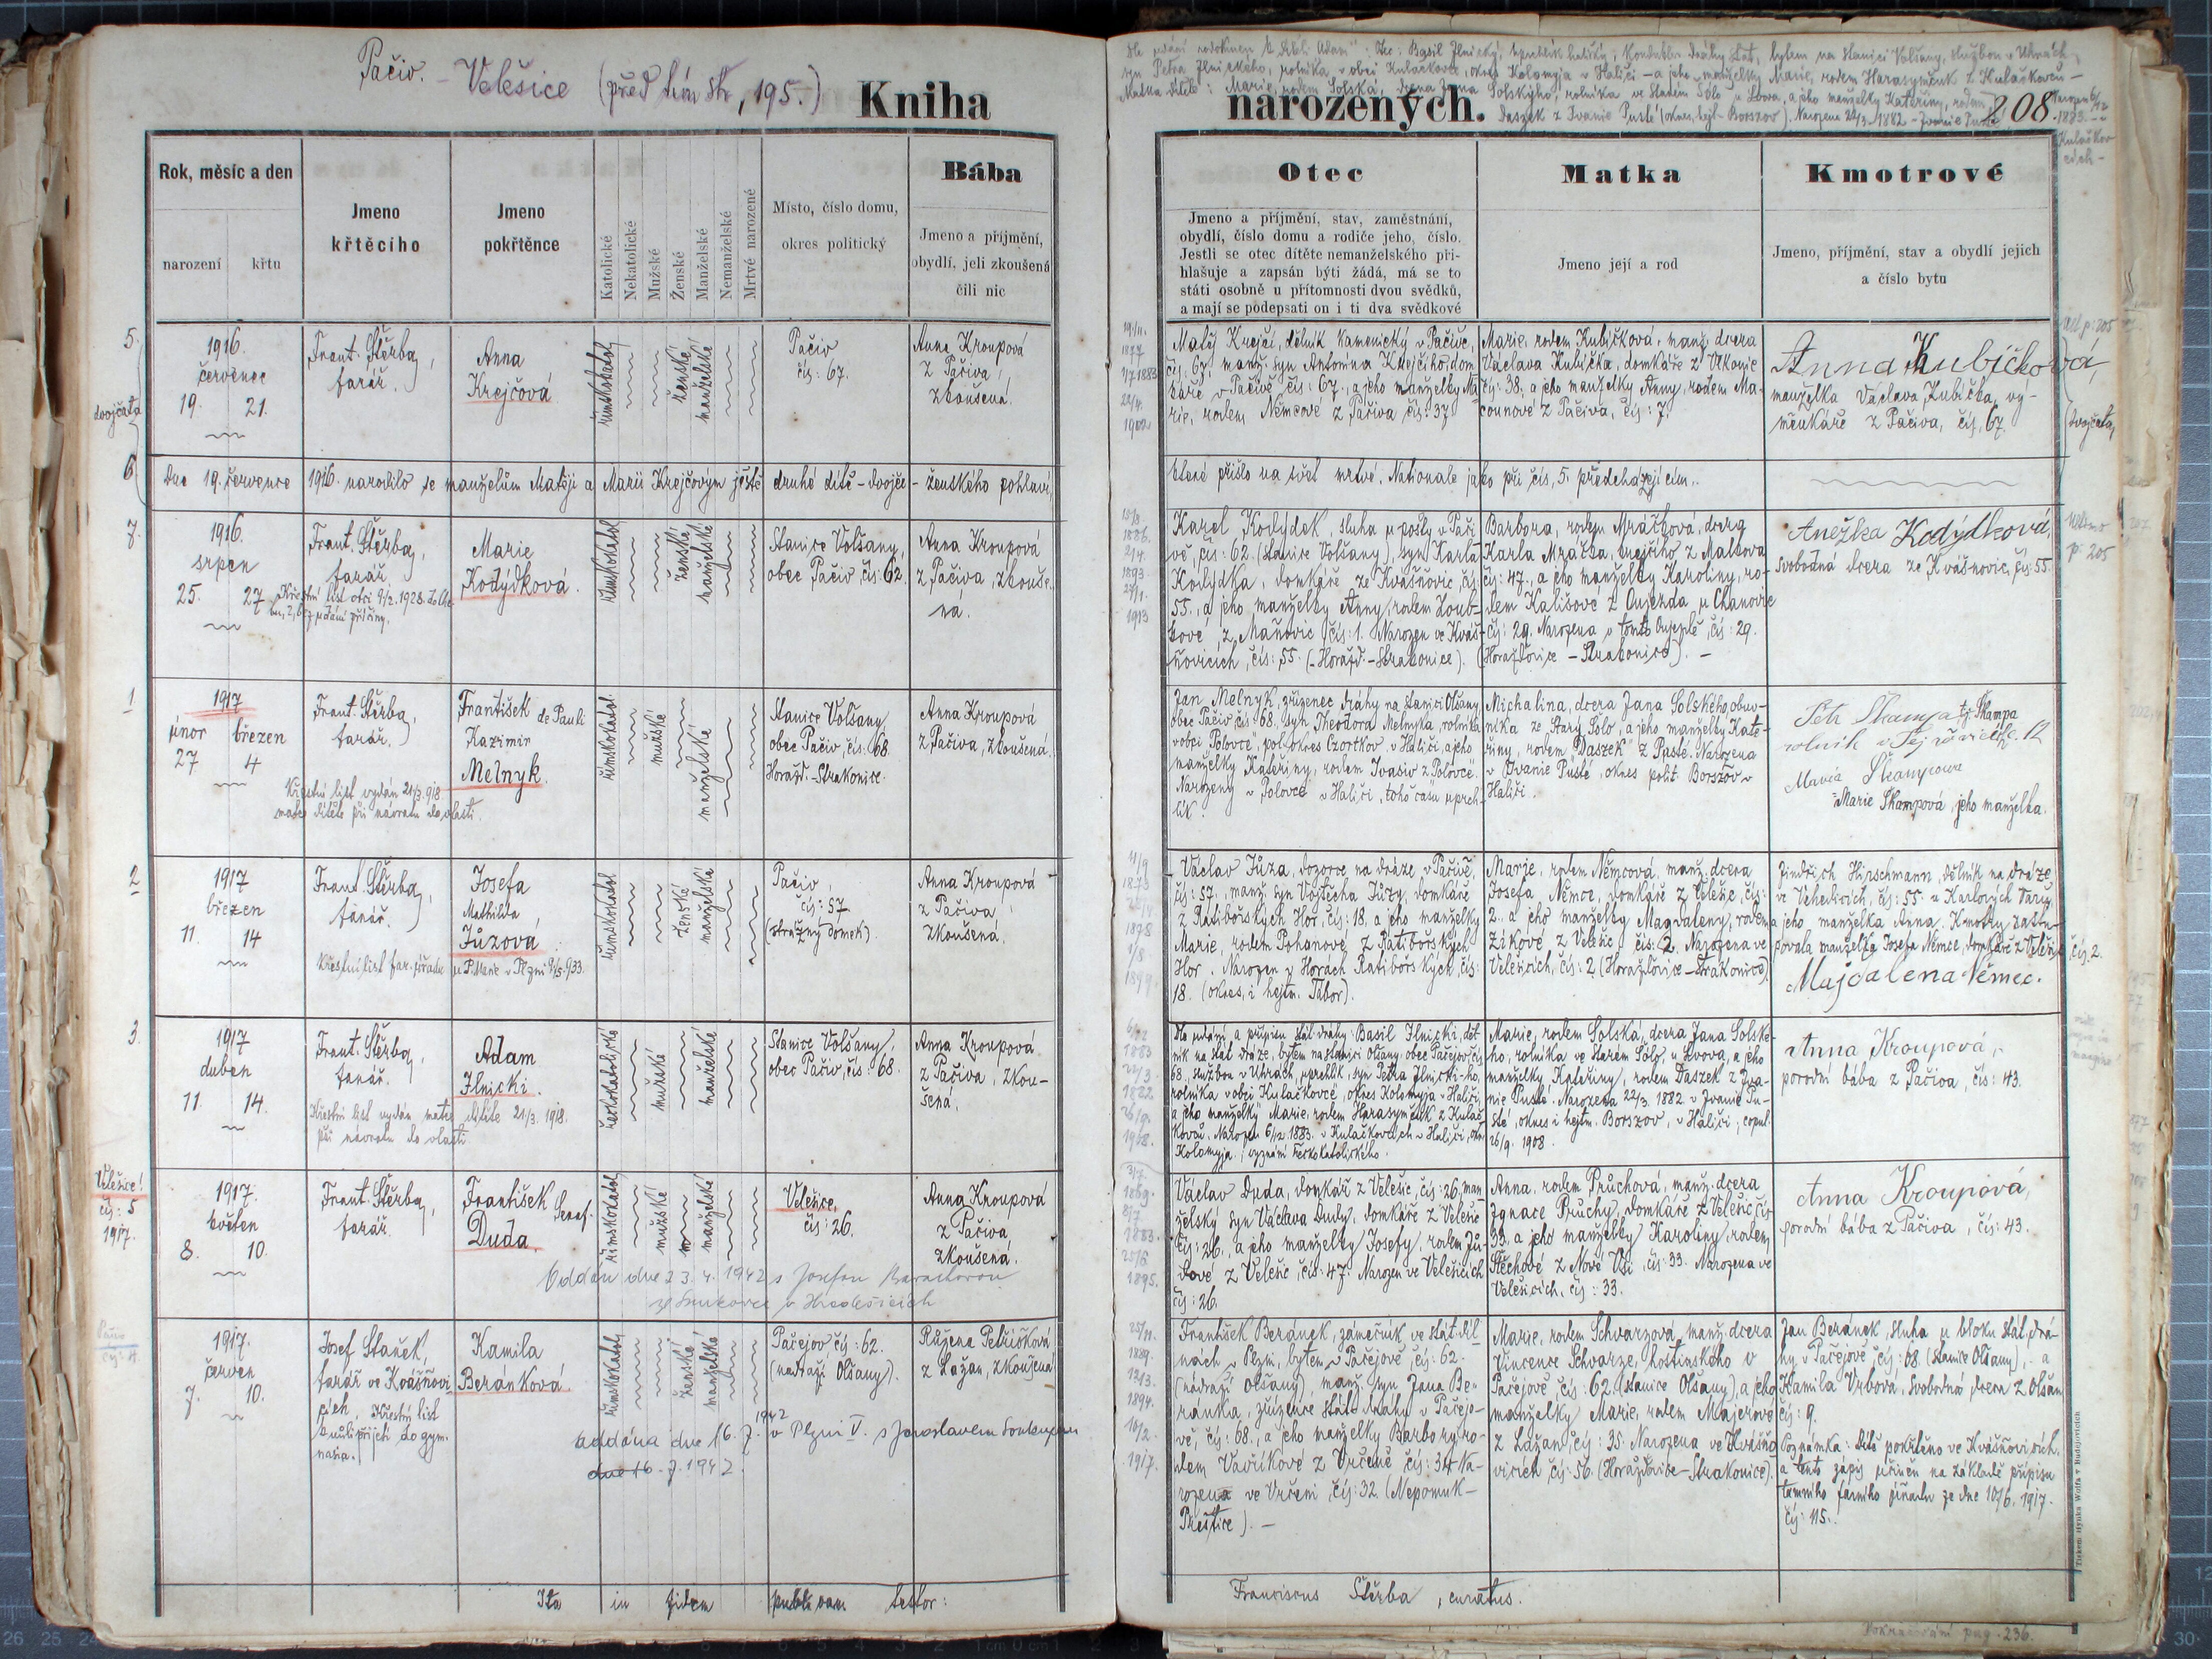 Pačiv. – Velešice (před tím str, 195.)
Kniha
narozených.
208.
Rok, měsíc a den
narození
křtu
Jmeno
křtěcího
Jmeno
pokřtěnce
Katolické
Nekatolické
Mužské
Ženské
Manželské
Nemanželské
Mrtvě narozené
Místo, číslo domu,
okres politický
Bába
Jmeno a příjmění,
obydlí, jeli zkoušená
čili nic
Otec
Jmeno a příjmění, stav, zaměstnání,
obydlí, číslo domu a rodiče jeho, číslo.
Jestli se otec dítěte nemanželského při-
hlašuje a zapsán býti žádá, má se to
státi osobně u přítomnosti dvou svědků,
a mají se podepsati on i ti dva svědkové
Matka
Jmeno její a rod
Kmotrové
Jmeno, příjmění, stav a obydlí jejich
a číslo bytu
5.
dvojčata
1916.
červenec
19. 21.
Frant. Štěrba,
farář.
Anna
Krejčová
římskokatol
ženské
manželské
Pačiv
čís: 67.
Anna Kroupová
z Pačiva,
zkoušená.
Matěj Krejčí, dělník kamenický v Pačivě,
čís: 67, manž. syn Antonína Krejčího, dom
káře v Pačivě čís: 67., a jeho manželky Ma
rie, rodem Němcové z Pačiva, čís: 37
Marie, rodem Kubíčková, manž. dcera
Václava Kubíčka, domkáře z Vlkonic
čís: 38, a jeho manželky Anny, rodem Ma-
counové z Pačiva, čís: 7.
Anna Kubíčková,
manželka Václava Kubíčka, vý-
měnkáře z Pačiva, čís, 67.
dvojčata
6.
Dne 19. července 1916. narodilo se manželům Matěji a Marii Krejčovým ještě druhé dítě – dvojče – ženského pohlaví,
které přišlo na svět mrtvé. Nationale jako při čís, 5. předcházejícím..
7.
1916.
srpen
25. 27
Frant. Štěrba,
farář.
Marie
Kodýdková.
římskokatol
ženské
manželské
Stanice Volšany,
obec Pačiv čís: 62.
Anna Kroupová
z Pačiva, zkouše-
ná.
Karel Kodýdek, sluha u pošty v Pači
vě, čís: 62. (stanice Volšany), syn Karla
Kodýdka, domkáře ze Kvášňovic, čís:
55., a jeho manželky Anny, rodem Houb-
kové, z Maňovic čís: 1. Narozen ve Kváš-
ňovicích, čís: 55. (Horažď.–Strakonice).
Barbora, rodem Mráčková, dcera
Karla Mráčka, krejčího z Malkova
čís: 47., a jeho manželky Karoliny, ro-
dem Kališové z Oujezda u Chanovic
čís: 29. Narozena v tomto Oujezdě, čís: 29.
(Horažďovice – Strakonice). –
Anežka Kodýdková,
svobodná dcera ze Kvášňovic, čís: 55.
1
1917
únor březen
27 4
Frant. Štěrba,
farář.
František de Pauli
Kazimir
Melnyk.
Křestní list vydán 21/3. 918
matce dítěte při návratu do vlasti.
římskokatol.
mužské
manželské
Stanice Volšany
obec Pačiv, čís: 68.
Horažď.–Strakonice.
Anna Kroupová
z Pačiva, zkoušená.
Jan Melnyk, zřízenec dráhy na stanici Olšany
obec Pačiv čís 68. syn Theodora Melnyka, rolníka
v obci "Polovce", pol. okres Czortkov v Haliči, a jeho
manželky Kateřiny, rodem Ivasiv z Polovce.
Narozený v Polovce v Haliči, toho času uprch-
lík.
Michalina, dcera Jana Solského, obuv-
níka ze Starý Solo, a jeho manželky Kate-
řiny, rodem "Daszek" z Pusté. Narozena
v Ivanie Pusté, okres polit. Borszov v
Haliči.
Marie Škampová, jeho manželka.
2
1917
březen
11. 14
Frant. Štěrba,
farář.
Josefa
Mathilda,
Jůzová
římskokatol
ženské
manželské
Pačiv,
čís: 57
(strážný domek).
Anna Kroupová
z Pačiva,
zkoušená.
Václav Jůza, dozorce na dráze v Pačivě,
čís: 57., manž. syn Vojtěcha Jůzy, domkáře
z Ratibořských Hor, čís: 18, a jeho manželky
Marie, rodem Pohanové z Ratibořských
Hor. Narozen v Horách Ratibořských, čís:
18. (okres, i hejtm. Tábor).
Marie, rodem Němcová, manž. dcera
Josefa Němce, domkáře z Velešic, čís:
2., a jeho manželky Magdaleny, rodem
Zíkové z Velešic čís: 2. Narozena ve
Velešicích, čís: 2 (Horažďovice–Strakonice).
Jindřich Hirschmann, dělník na dráze
ve Vohedicích, čís: 55. u Karlových Varů,
a jeho manželka Anna. Kmotry zastu-
povala manželka Josefa Němce, domkáře z Velešic, čís. 2.
Majdalena Němec.
3.
1917
duben
11. 14.
Frant. Štěrba,
farář.
Adam
Ilnicki.
Křestní list vydán matce dítěte 21/3. 1918.
při návratu do vlasti
řeckokatolické
mužské
manželské
Stanice Volšany,
obec Pačiv, čís: 68.
Anna Kroupová
z Pačiva, zkou-
šená.
Dle udání a přípisu stát. dráhy: Basil Ilnicki, děl-
ník na stát dráze, bytem na stanici Olšany, obec Pačejov čís
68., službou v Uhrách, uprchlík, syn Petra Ilnicki-ho,
rolníka v obci Kulačkovce, okres Kolomyja v Haliči,
a jeho manželky Marie, rodem Harasymčuk z Kulač
kovců. Narozen 6/12. 1883. v Kulačkovcích v Haliči, okr.
Kolomyja. / vyznání řeckokatolického.
Marie, rodem Solská, dcera Jana Solské-
ho, rolníka ve Starém Solo, u Lvova, a jeho
manželky Kateřiny, rodem Daszek z Iva-
nie Pusté. Narozena 22/3. 1882. v Ivanie Pu-
sté, okres i hejtm. Borszov, v Haliči; copul.
26/9. 1908.
Anna Kroupová,
porodní bába z Pačiva, čís: 43.
Velešice!
čís: 5
1917.
1917.
květen
8. 10.
Frant. Štěrba,
farář.
František Seraf.
Duda.
římskokatol
mužské
manželské
Velešice,
čís: 26.
Anna Kroupová
z Pačiva,
zkoušená.
Oddán dne 23. 4. 1942 s Josefou
Václav Duda, domkář z Velešic, čís: 26, man
želský syn Václava Dudy, domkáře z Velešic
čís: 26., a jeho manželky Josefy, rodem Jů-
dové z Velešic, čís: 47. Narozen ve Velešicích
čís: 26.
Anna, rodem Průchová, manž. dcera
Ignace Průchy, domkáře z Velešic čís
33. a jeho manželky Karoliny, rodem
Štěchové z Nové Vsi, čís: 33. Narozena ve
Velešicích, čís: 33.
Anna Kroupová,
porodní bába z Pačiva, čís: 43.
1917.
červen
7. 10.
Josef Staněk,
farář ve Kvášňovi-
cích. Křestní list
kvůli přijetí do gym-
nasia.
Kamila
Beranková.
římskokatol
ženské
manželské
Pačejov čís: 62.
(nádraží Olšany).
Růžena Petříčková
z Lažan, zkoušená
oddána dne 16. 7. 1942 v Plzni V. s Jaroslavem
dne 16. 7. 1942.
František Beránek, zámečník ve stát. díl
nách v Plzni, bytem v Pačejově, čís: 62.
(nádraží Olšany), manž. syn Jana Be-
ránka, zřízence státní dráhy v Pačejo-
vě, čís: 68., a jeho manželky Barbory, ro-
dem Vavříkové z Vrčeně čís: 34. Na-
rozen ve Vrčeni, čís: 32. (Nepomuk –
Přeštice). –
Marie, rodem Schvarzová, manž. dcera
Vincence Schvarze, hostinského v
Pačejově, čís: 62. (stanice Olšany), a jeho
manželky Marie, rodem Majerové
z Lažan, čís: 35. Narozena ve Kvášňo
vicích čís: 56. (Horažďovice–Strakonice).
Jan Beránek, sluha u bloku stát. drá-
hy, v Pačejově, čís: 68. (stanice Olšany), a
Kamila Vrbová, svobodná dcera z Olšan
čís: 9.
Poznámka: Dítě pokřtěno ve Kvášňovicích.
a tento zápis učiněn na základě přípisu
tamního farního úřadu ze dne 10/6. 1917.
čís: 115..
Ita in fidem publicam testor:
Franciscus Štěrba, curatus.
Pokračování pag. 236.
Tiskem Hynka Wolfa v Budějovicích